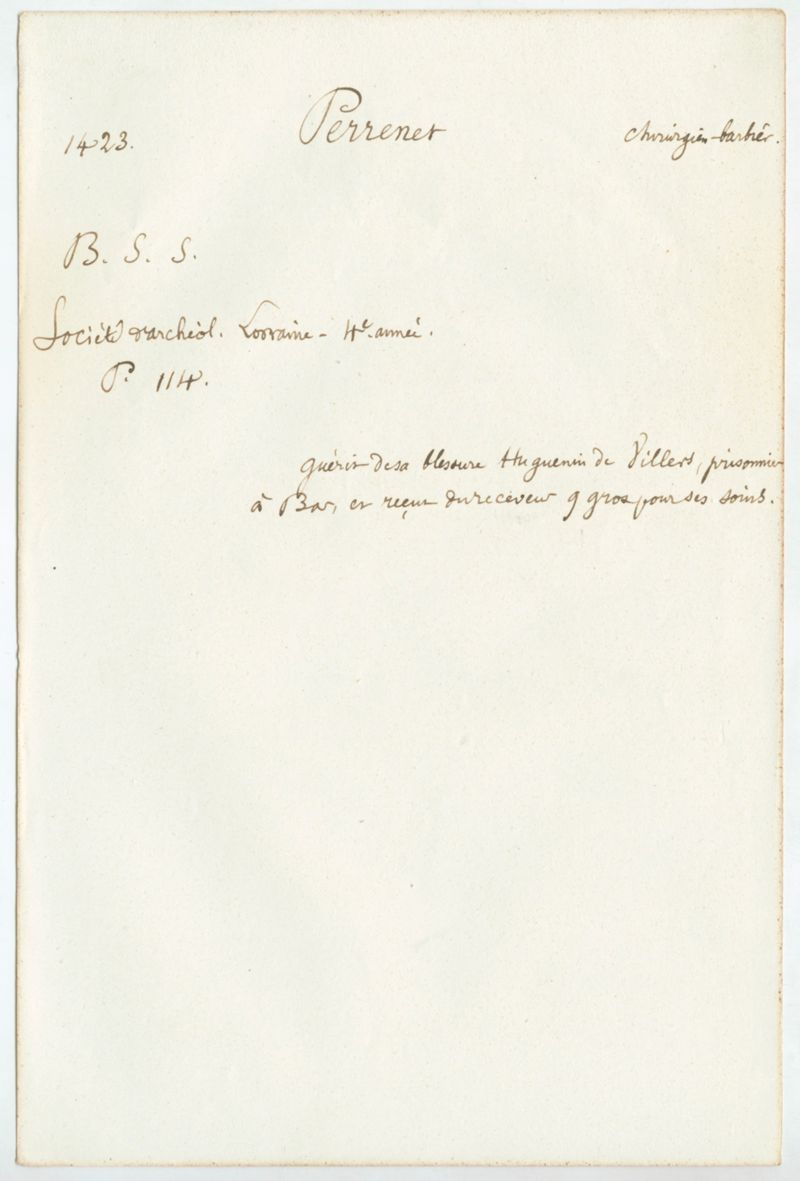 1423. Perrenet chirurgien-barbier.
B. S. S.
Société d'archéol. Lorraine - 4e. année.
P. 114.
guérit de sa blessure Huguenin de Villers, prisonnier
à Bar, et reçut du receveur 9 gros pour ses soins.